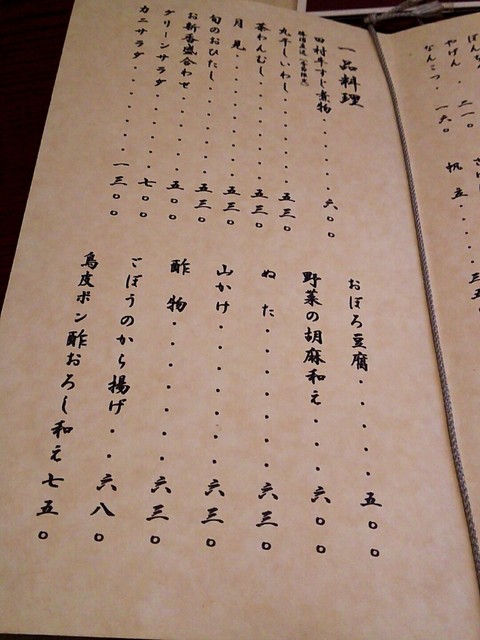 一品料理
田村牛すじ煮物・・・・・・六〇〇
丸干しいわし・・・・・五三〇
茶わんむし・・・・・・五三〇
月見・・・・・・・・五三〇
旬のおひたし・・・・・・五三〇
お新香盛合わせ・・・・・五〇〇
グリーンサラダ・・・・・七〇〇
カニサラダ・・・・・・一三〇〇
おぼろ豆腐・・・・・五〇〇
野菜の胡麻和え・・・・六〇〇
ぬた・・・・・・・・六三〇
山かけ・・・・・・・・六三〇
酢物・・・・・・・・六三〇
ごぼうのから揚げ・・六八〇
鳥皮ポン酢おろし和え七五〇
やげん・・二一〇
なんこつ・・一六〇
帆立・・・・